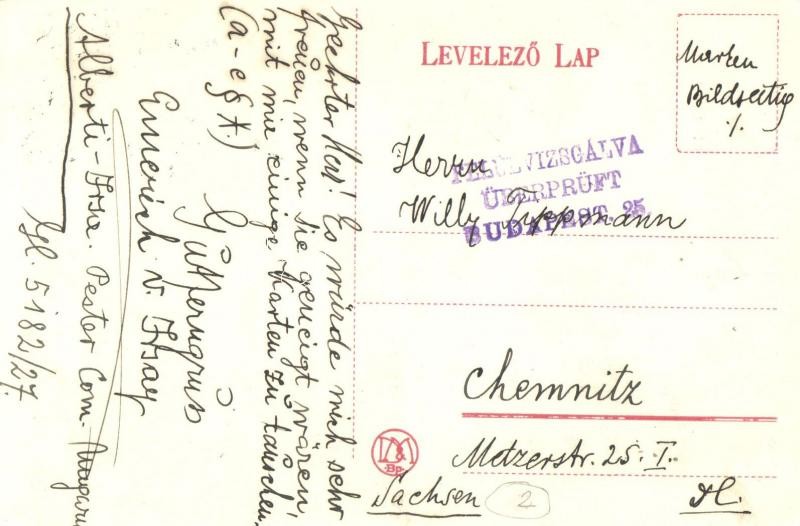 Geehrter Herr! Es würde mich sehr
freuen, wenn Sie geneigt wären
mit mir einige Karten zu tauschen!
(a-c§A) Gutferngruss
Emerich v. Irsay
Alberti-Irsa. Pester Com.
Gl. 5182/27.
LEVELEZŐ LAP
Marken
Bildseitig
./.
FELÜLVIZSGÁLVA
ÜBERPRÜFT
BUDAPEST. 25
Herrn
Willy
Chemnitz
Metzerstr. 25. I.
Sachsen
2
Bp.